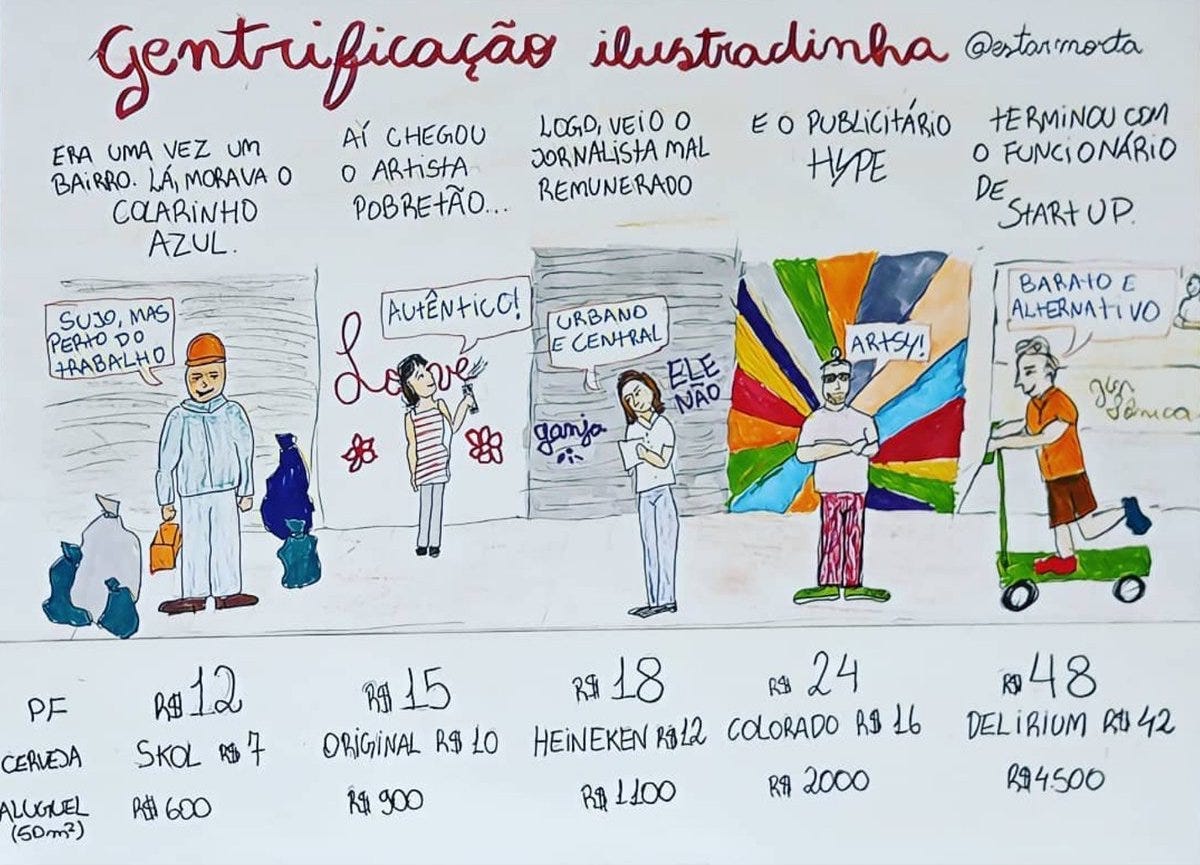 Gentrificação ilustradinha @estarmorta
ERA UMA VEZ UM
BAIRRO. LÁ, MORAVA O
COLARINHO
AZUL.
AÍ CHEGOU
O ARTISTA
POBRETÃO...
LOGO, VEIO O
JORNALISTA MAL
REMUNERADO
E O PUBLICITÁRIO
HYPE
TERMINOU COM
O FUNCIONÁRIO
DE
START UP.
SUJO, MAS
PERTO DO
TRABALHO
AUTÊNTICO!
Love
URBANO
E CENTRAL
ELE
NÃO
ganja
ARTSY!
BARATO E
ALTERNATIVO
PF
R$ 12
R$ 15
R$ 18
R$ 24
R$ 48
CERVEJA
SKOL R$ 7
ORIGINAL R$ 10
HEINEKEN R$ 12
COLORADO R$ 16
DELIRIUM R$ 42
ALUGUEL
(50m²)
R$ 600
R$ 900
R$ 1100
R$ 2000
R$ 4.500